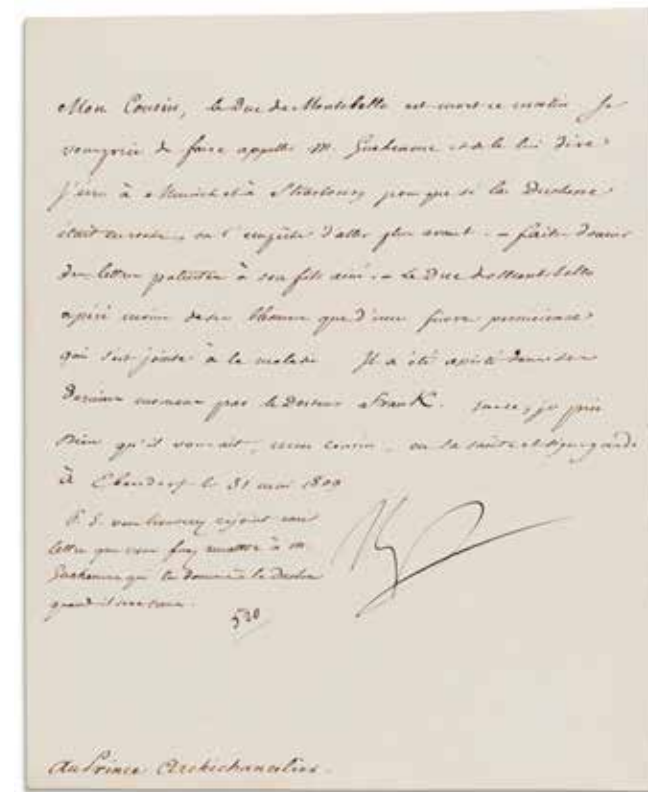 Mon Cousin, le Duc de Montebello est mort ce matin. Je
vous prie de faire appeller M. Guehenneuc et de le lui dire
j'écris à Munich et à Strasbourg pour que si la Duchesse
était en route, on l'empêche d'aller plus avant. – faites donner
des lettres patentes à son fils ainé. – Le Duc de Montebello
a péri moins de ses blessures que d'une fievre pernicieuse
qui s'est jointe à la maladie Il a été assisté dans ses
derniers momens par le Docteur Frank. sur ce, je prie
Dieu qu'il vous ait, mon cousin, en sa sainte et digne garde
à Ebersdorf le 31 mai 1809
P. S. vous trouverez cijoint une
lettre que vous ferez remettre à M.
Guehenneuc qui la donnera à la Duchesse
quand il
520
Au Prince Archichancelier.